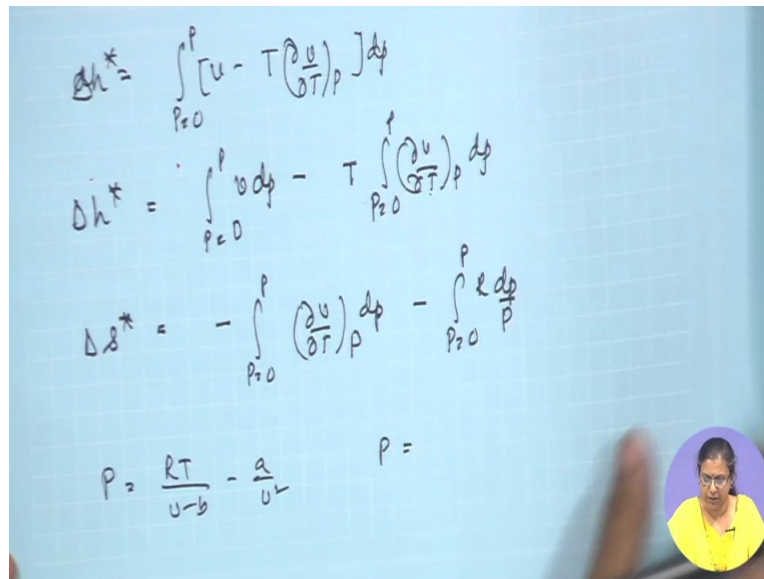 Δh* = ∫_{P=0}^{P} [v - T(∂v/∂T)_P] dp
Δh* = ∫_{P=0}^{P} v dp - T ∫_{P=0}^{P} (∂v/∂T)_P dp
Δs* = - ∫_{P=0}^{P} (∂v/∂T)_P dp - ∫_{P=0}^{P} R dp/P
P = RT/(v-b) - a/v² P =